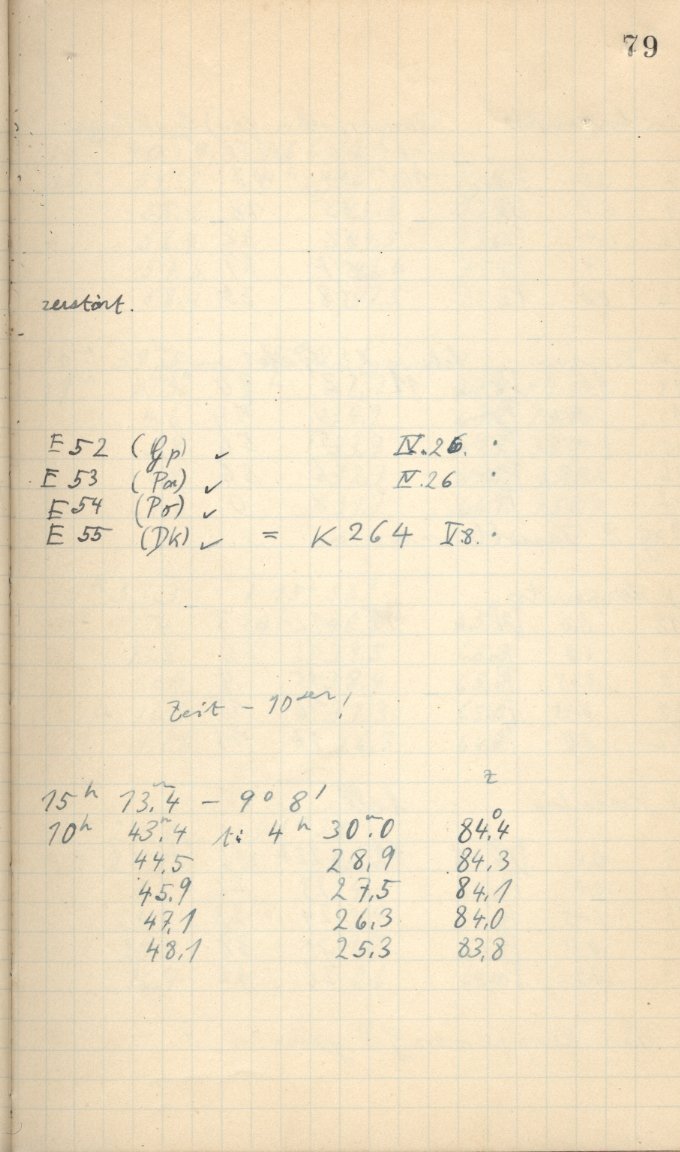 79
zerstört.
E 52 (Gp) ✓ IV.26.
E 53 (Pa) ✓ IV.26
E 54 (Pσ) ✓
E 55 (Dk) ✓ = K 264 V.8.
Zeit - 10 !
z
15ʰ 13ᵐ.4 - 9° 8'
10ʰ 43ᵐ.4 t: 4ʰ 30ᵐ.0 84°.4
44.5 28.9 84.3
45.9 27.5 84.1
47.1 26.3 84.0
48.1 25.3 83.8